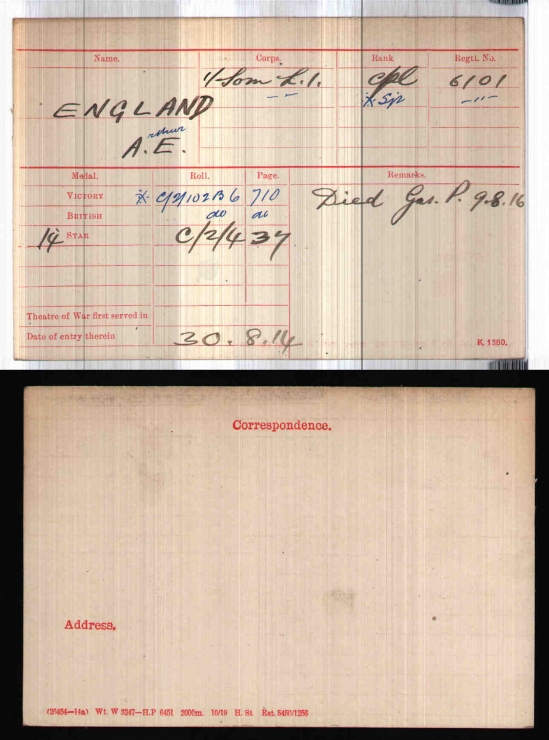 Name. Corps. Rank Regtl. No.
1/Som L.I. Cpl 6101
-"- X Sjt -"-
ENGLAND
A.E.
rthur
Medal. Roll. Page. Remarks.
VICTORY X C/2/102B6 710 Died Gas. P. 9.8.16
BRITISH do do
14 STAR C/2/4 37
Theatre of War first served in
Date of entry therein 30.8.14
K. 1380.
Correspondence.
Address.
(25454—14a) Wt. W 3347—H.P 6451 2000m. 10/19 H. St. Est. 5450/1256